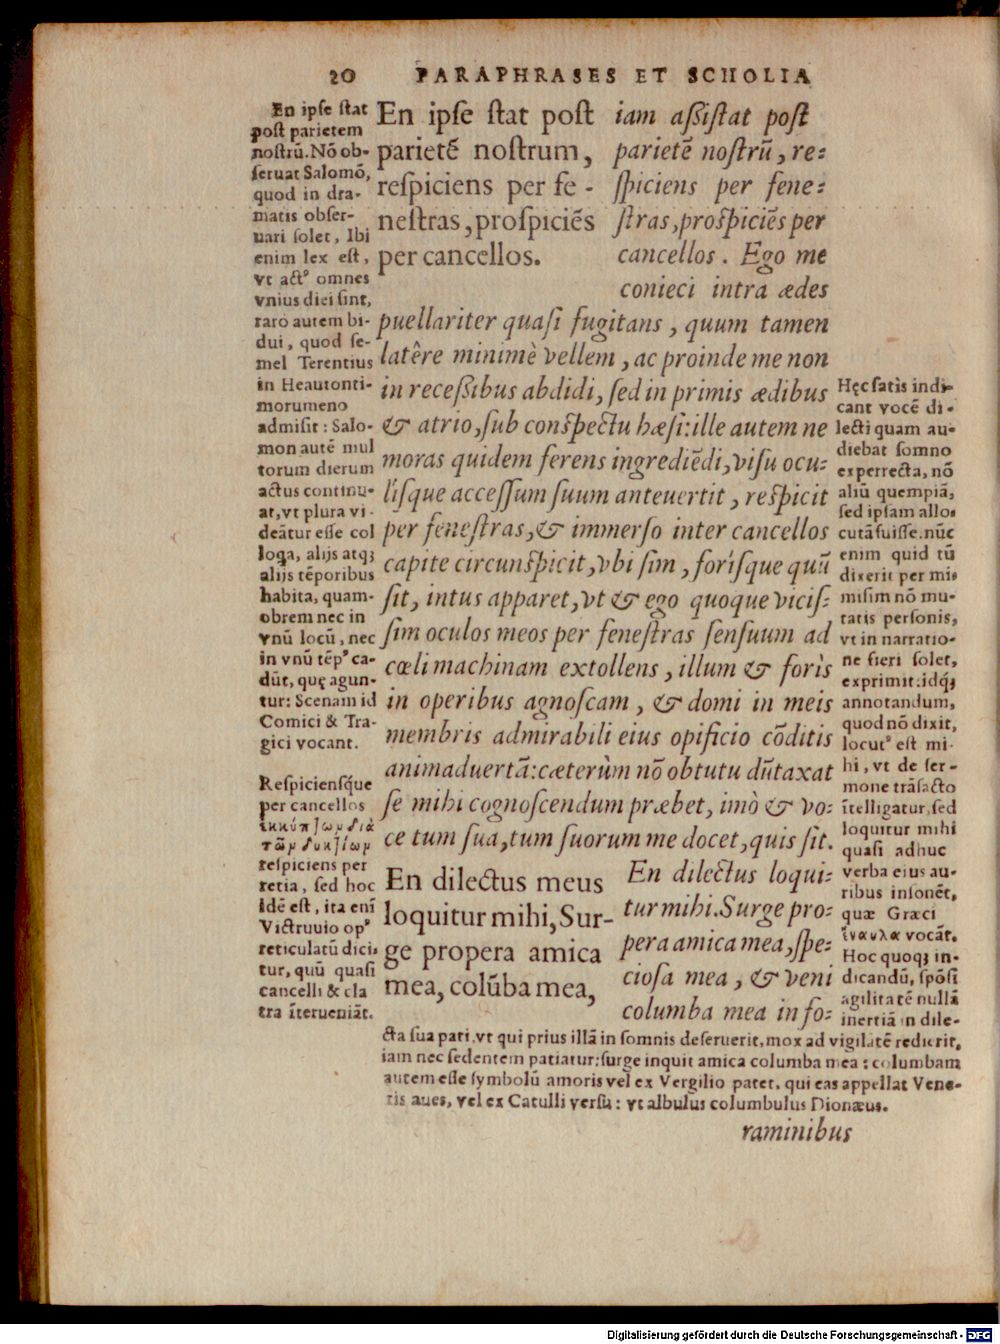 20 PARAPHRASES ET SCHOLIA
En ipſe ſtat
poſt parietem
noſtrū. Nō ob-
ſeruat Salomō,
quod in dra-
matis obſer-
uari ſolet, Ibi
enim lex eſt,
vt actꝰ omnes
vnius diei ſint,
raro autem bi-
dui, quod ſe-
mel Terentius
in Heautonti-
morumeno
admiſit: Salo-
mon autē mul
torum dierum
actus continu-
at, vt plura vi-
deātur eſſe col
loqa, alijs atqꝫ
alijs tēporibus
habita, quam-
obrem nec in
vnū locū, nec
in vnū tēpꝰ ca-
dūt, quę agun-
tur: Scenam id
Comici & Tra-
gici vocant.
Reſpicienſq́ue
per cancellos
ἐκκύπτων διὰ
τῶν δικτύων
reſpiciens per
retia, ſed hoc
idē eſt, ita enī
Victruuio opꝰ
reticulatū dici-
tur, quū quaſi
cancelli & cla
tra īterueniāt.
En ipſe ſtat poſt
parietē noſtrum,
reſpiciens per fe-
neſtras, proſpiciēs
per cancellos.
iam aſſiſtat poſt
parietē noſtrū, re-
ſpiciens per fene-
ſtras, proſpiciēs per
cancellos. Ego me
conieci intra ædes
puellariter quaſi fugitans, quum tamen
latêre minimè vellem, ac proinde me non
in receſſibus abdidi, ſed in primis ædibus
& atrio, ſub conſpectu hæſi: ille autem ne
moras quidem ferens ingrediēdi, viſu ocu-
liſque acceſſum ſuum anteuertit, reſpicit
per feneſtras, & immerſo inter cancellos
capite circunſpicit, vbi ſim, foriſque quū
ſit, intus apparet, vt & ego quoque viciſ-
ſim oculos meos per feneſtras ſenſuum ad
cœli machinam extollens, illum & foris
in operibus agnoſcam, & domi in meis
membris admirabili eius opificio cōditis
animaduertā: cæterùm nō obtutu dūtaxat
ſe mihi cognoſcendum præbet, imò & vo-
ce tum ſua, tum ſuorum me docet, quis ſit.
En dilectus meus
loquitur mihi, Sur-
ge propera amica
mea, colūba mea,
En dilectus loqui-
tur mihi. Surge pro-
pera amica mea, ſpe-
cioſa mea, & veni
columba mea in fo-
Hęc ſatis indi-
cant vocē di-
lecti quam au-
diebat ſomno
experrecta, nō
aliū quempiā,
ſed ipſam allo-
cutā fuiſſe. nūc
enim quid tū
dixerit per mi-
miſim nō mu-
tatis perſonis,
vt in narratio-
ne fieri ſolet,
exprimit: idq́ꝫ
annotandum,
quod nō dixit,
locutꝰ eſt mi-
hi, vt de ſer-
mone trāſacto
ītelligatur, ſed
loquitur mihi
quaſi adhuc
verba eius au-
ribus inſonēt,
quæ Græci
ἔναυλα vocāt.
Hoc quoqꝫ in-
dicandū, ſpōſi
agilitatē nullā
inertiā in dile-
cta ſua pati, vt qui prius illā in ſomnis deſeruerit, mox ad vigilatē redierit,
iam nec ſedentem patiatur: ſurge inquit amica columba mea: columbam
autem eſſe ſymbolū amoris vel ex Vergilio patet, qui eas appellat Vene-
ris aues, vel ex Catulli verſu: vt albulus columbulus Dionæus.
raminibus
Digitalisierung gefördert durch die Deutsche Forschungsgemeinschaft - DFG